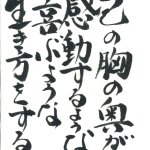 己の胸の奥が
感動するような
喜ぶような
生き方をする